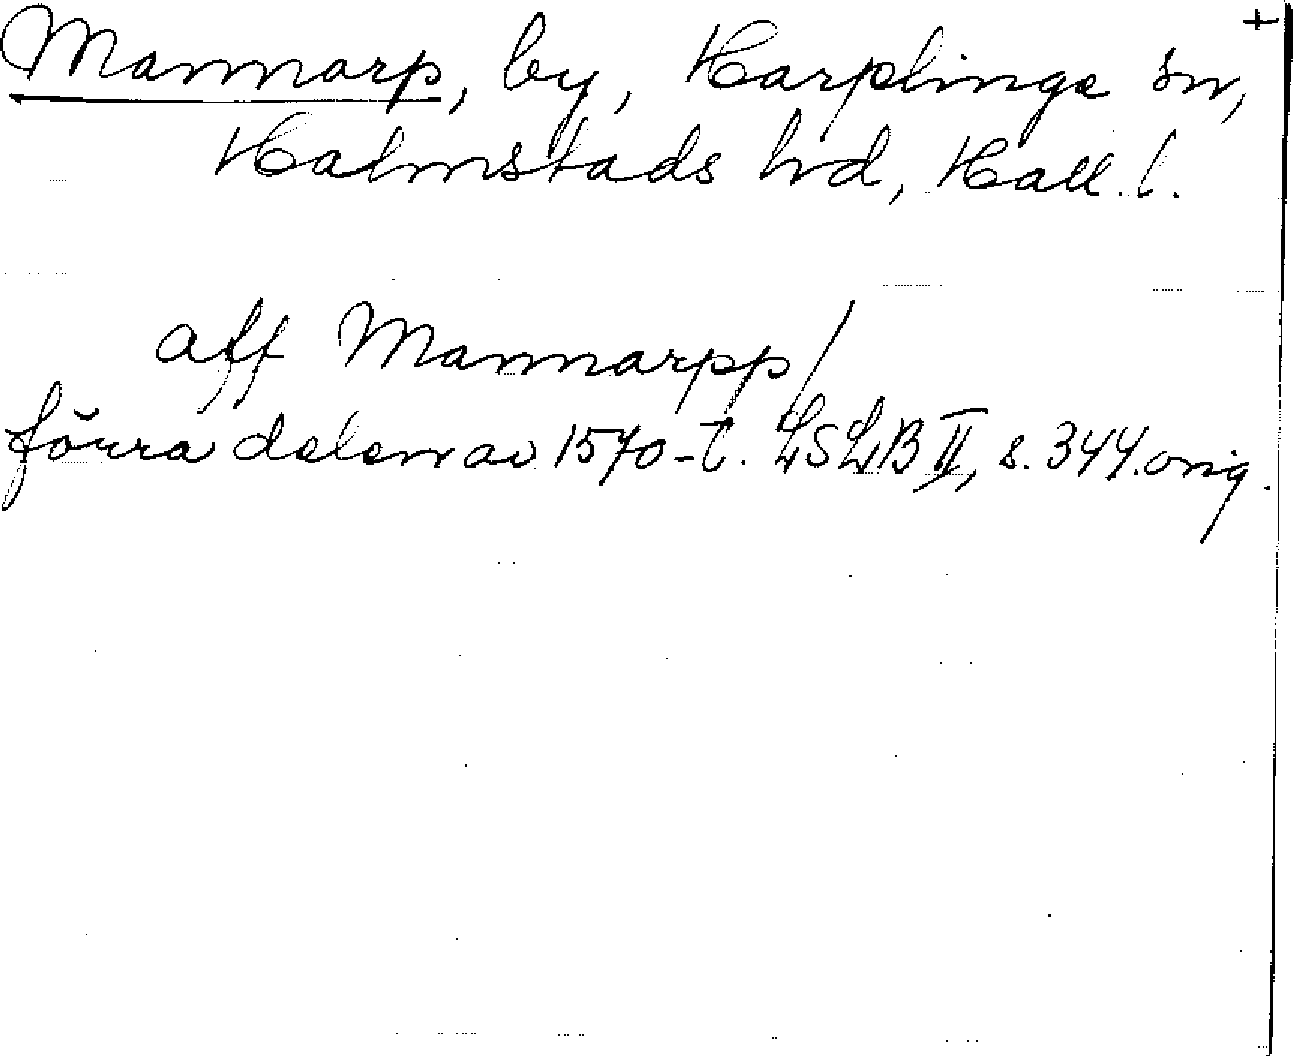 +
Mannarp, by, Harplinge sn,
Halmstads hd, Hall. l.
aff Mannarpp/
förra delen av 1570-t. LSLB II, s. 344. orig.